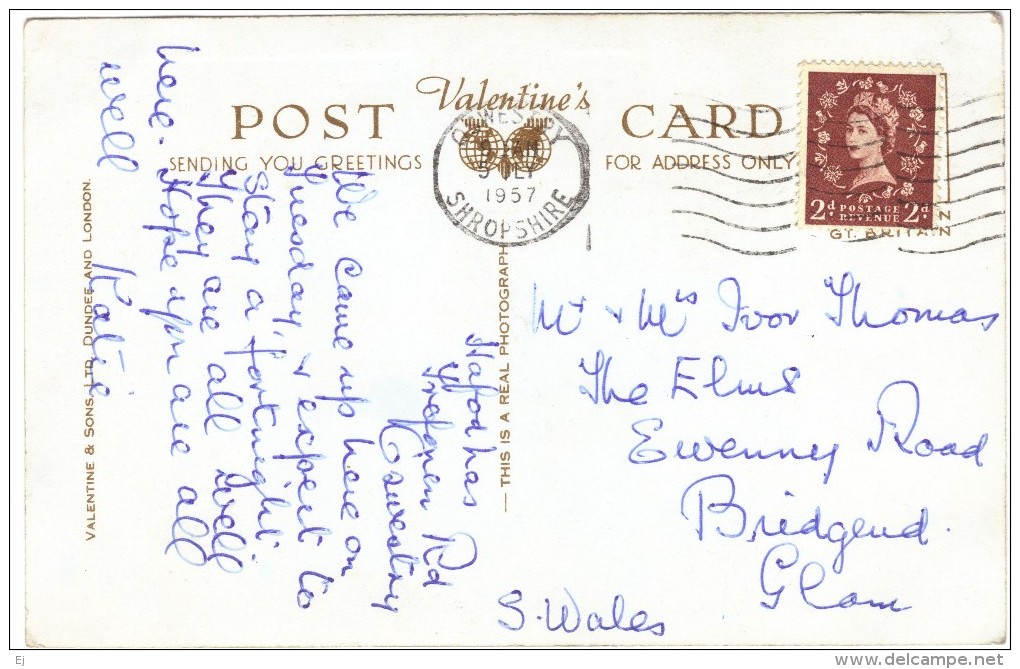 Valentine's
POST CARD
SENDING YOU GREETINGS FOR ADDRESS ONLY
OSWESTRY
9 AM
1957
SHROPSHIRE
2d POSTAGE REVENUE 2d
GT. BRITAIN
VALENTINE & SONS, LTD. DUNDEE AND LONDON.
THIS IS A REAL PHOTOGRAPH
Rd
Oswestry
We came up here on
Tuesday, & expect to
stay a fortnight.
They are all well
here. Hope you are all
well Katie
Mr & Mrs Ivor Thomas
The Elms
Ewenny Road
Bridgend.
Glam
S. Wales
Ej
delcampe.net